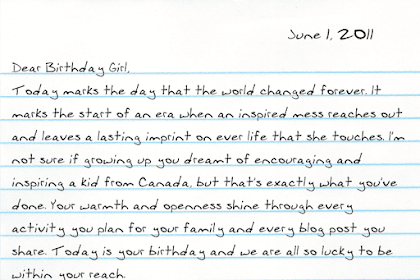 June 1, 2011
Dear Birthday Girl,
Today marks the day that the world changed forever. It
marks the start of an era when an inspired mess reaches out
and leaves a lasting imprint on ever life that she touches. I'm
not sure if growing up you dreamt of encouraging and
inspiring a kid from Canada, but that's exactly what you've
done. Your warmth and openness shine through every
activity you plan for your family and every blog post you
share. Today is your birthday and we are all so lucky to be
within your reach.